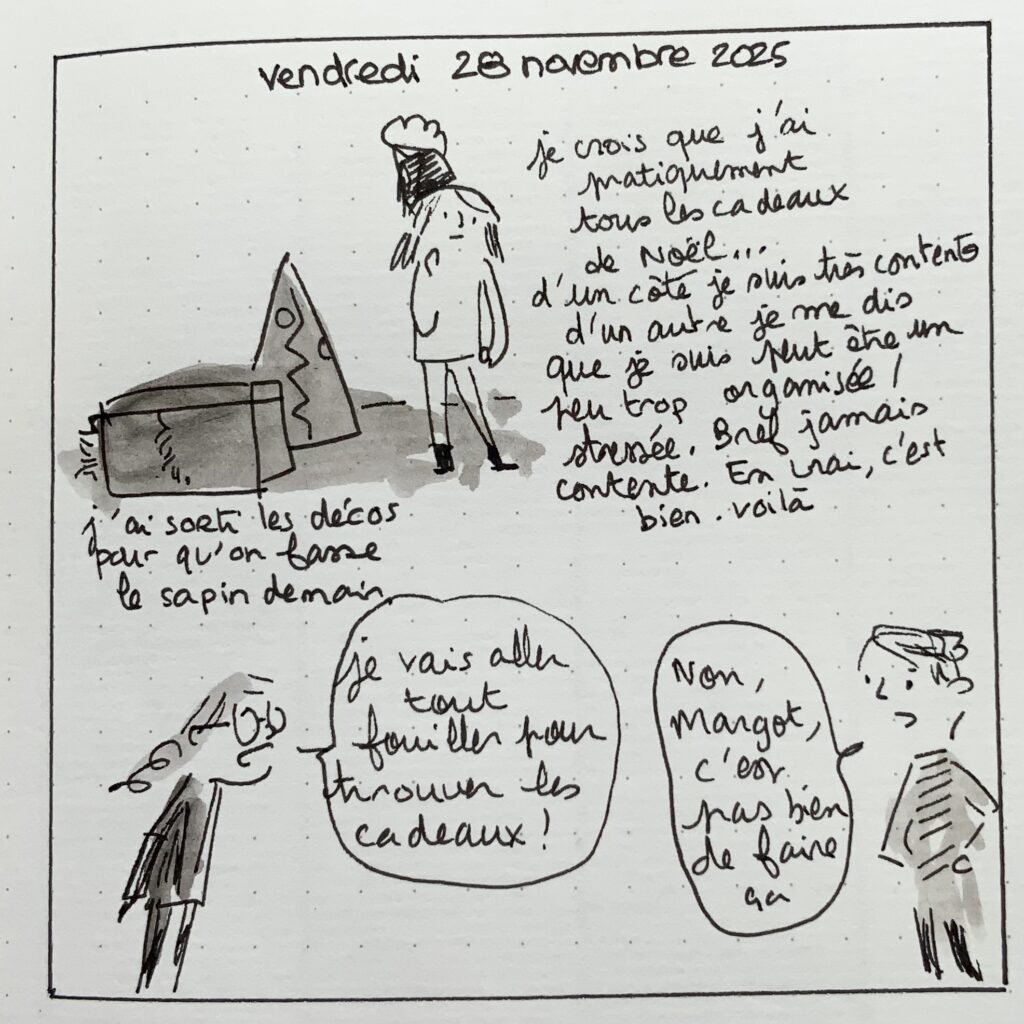 vendredi 28 novembre 2025
je crois que j'ai
pratiquement
tous les cadeaux
de Noël...
d'un côté je suis très contente
d'un autre je me dis
que je suis peut être un
peu trop organisée /
stressée. Bref jamais
contente. En vrai, c'est
bien. voilà
j'ai sorti les décos
pour qu'on fasse
le sapin demain.
je vais aller
tout
fouiller pour
trouver les
cadeaux !
Non,
Margot,
c'est
pas bien
de faire
ça